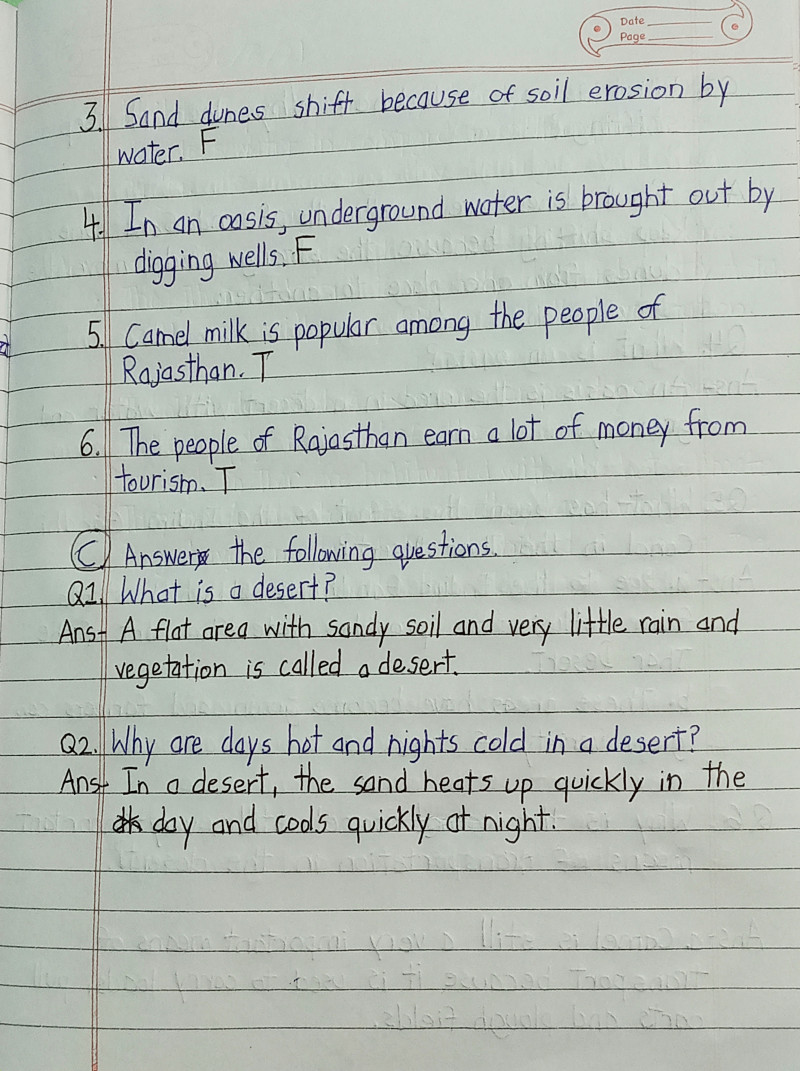 Date
Page
3. Sand dunes shift because of soil erosion by
water. F
4. In an oasis, underground water is brought out by
digging wells. F
5. Camel milk is popular among the people of
Rajasthan. T
6. The people of Rajasthan earn a lot of money from
tourism. T
C Answer the following questions.
Q1. What is a desert?
Ans- A flat area with sandy soil and very little rain and
vegetation is called a desert.
Q2. Why are days hot and nights cold in a desert?
Ans- In a desert, the sand heats up quickly in the
day and cools quickly at night.